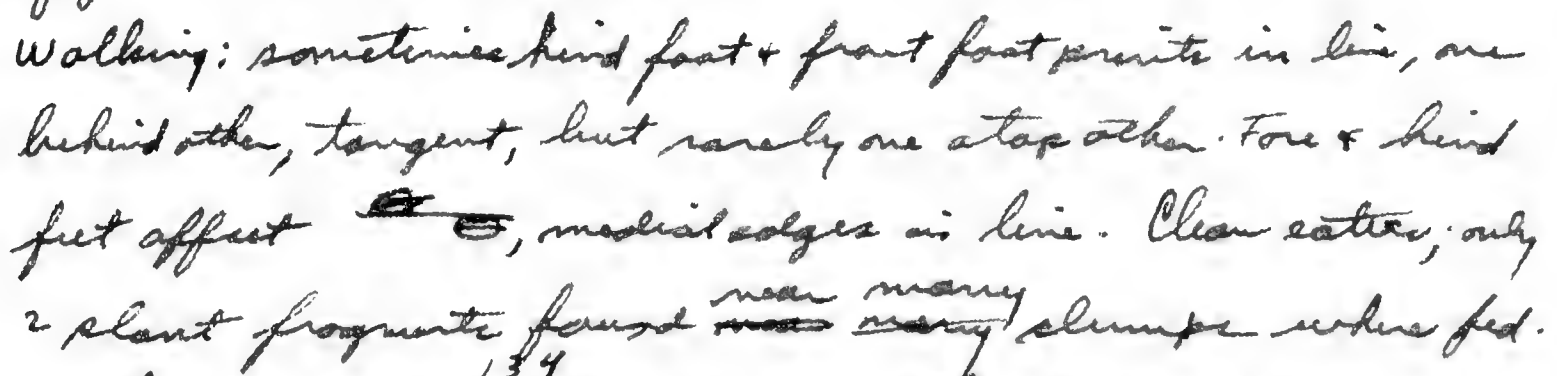 Walking: sometimes hind foot & front foot prints in line, one
behind other, tangent, but rarely one atop other. Fore & hind
feet offset , medial edges in line. Clean eaters; only
2 plant fragments found near many clumps where fed.
134